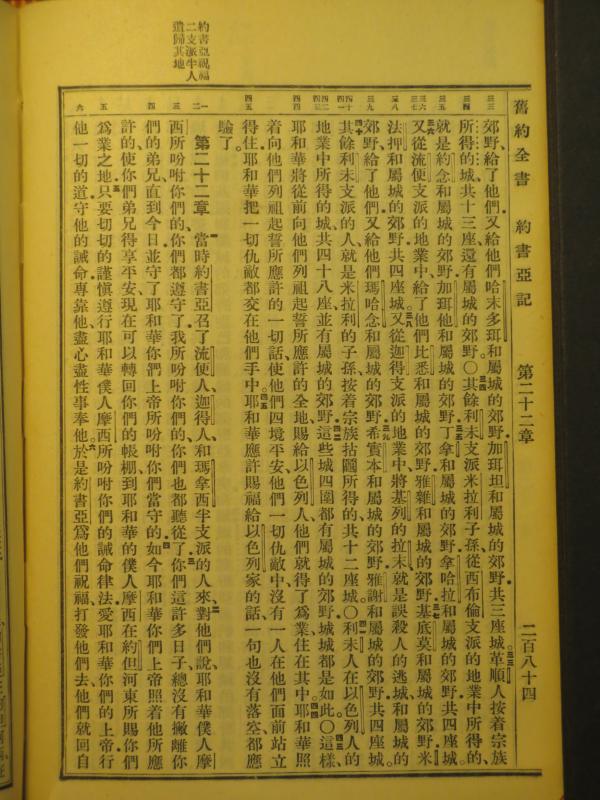 舊約全書 約書亞記 第二十二章 二百八十四
郊野給了他們又給他們哈末多珥和屬城的郊野加珥坦和屬城的郊野共三座城革順人按着宗族
所得的城共十三座還有屬城的郊野〇其餘利未支派米拉利子孫從西布倫支派的地業中所得的
就是約念和屬城的郊野加珥他和屬城的郊野丁拿和屬城的郊野拿哈拉和屬城的郊野共四座城
又從流便支派的地業中給了他們比悉和屬城的郊野雅雜和屬城的郊野基底莫和屬城的郊野米
法押和屬城的郊野共四座城又從迦得支派的地業中將基列的拉末就是誤殺人的逃城和屬城的
郊野給了他們又給他們瑪哈念和屬城的郊野希實本和屬城的郊野雅謝和屬城的郊野共四座城
其餘利未支派的人就是米拉利的子孫按着宗族拈鬮所得的共十二座城〇利未人在以色列人的
地業中所得的城共四十八座並有屬城的郊野這些城四圍都有屬城的郊野城城都是如此〇這樣
耶和華將從前向他們列祖起誓所應許的全地賜給以色列人他們就得了爲業住在其中耶和華照
着向他們列祖起誓所應許的一切話使他們四境平安他們一切仇敵中沒有一人在他們面前站立
得住耶和華把一切仇敵都交在他們手中耶和華應許賜福給以色列家的話一句也沒有落空都應
驗了
第二十二章 當時約書亞召了流便人迦得人和瑪拿西半支派的人來對他們說耶和華僕人摩
西所吩咐你們的你們都遵守了我所吩咐你們的你們也都聽從了你們這許多日子總沒有撇離你
們的弟兄直到今日並守了耶和華你們上帝所吩咐你們當守的如今耶和華你們上帝照着他所應
許的使你們弟兄得享平安現在可以轉回你們的帳棚到耶和華的僕人摩西在約但河東所賜你們
爲業之地只要切切的謹愼遵行耶和華僕人摩西所吩咐你們的誡命律法愛耶和華你們的上帝行
他一切的道守他的誡命專靠他盡心盡性事奉他於是約書亞爲他們祝福打發他們去他們就回自
約書亞祝福
二支派半人
遣歸其地